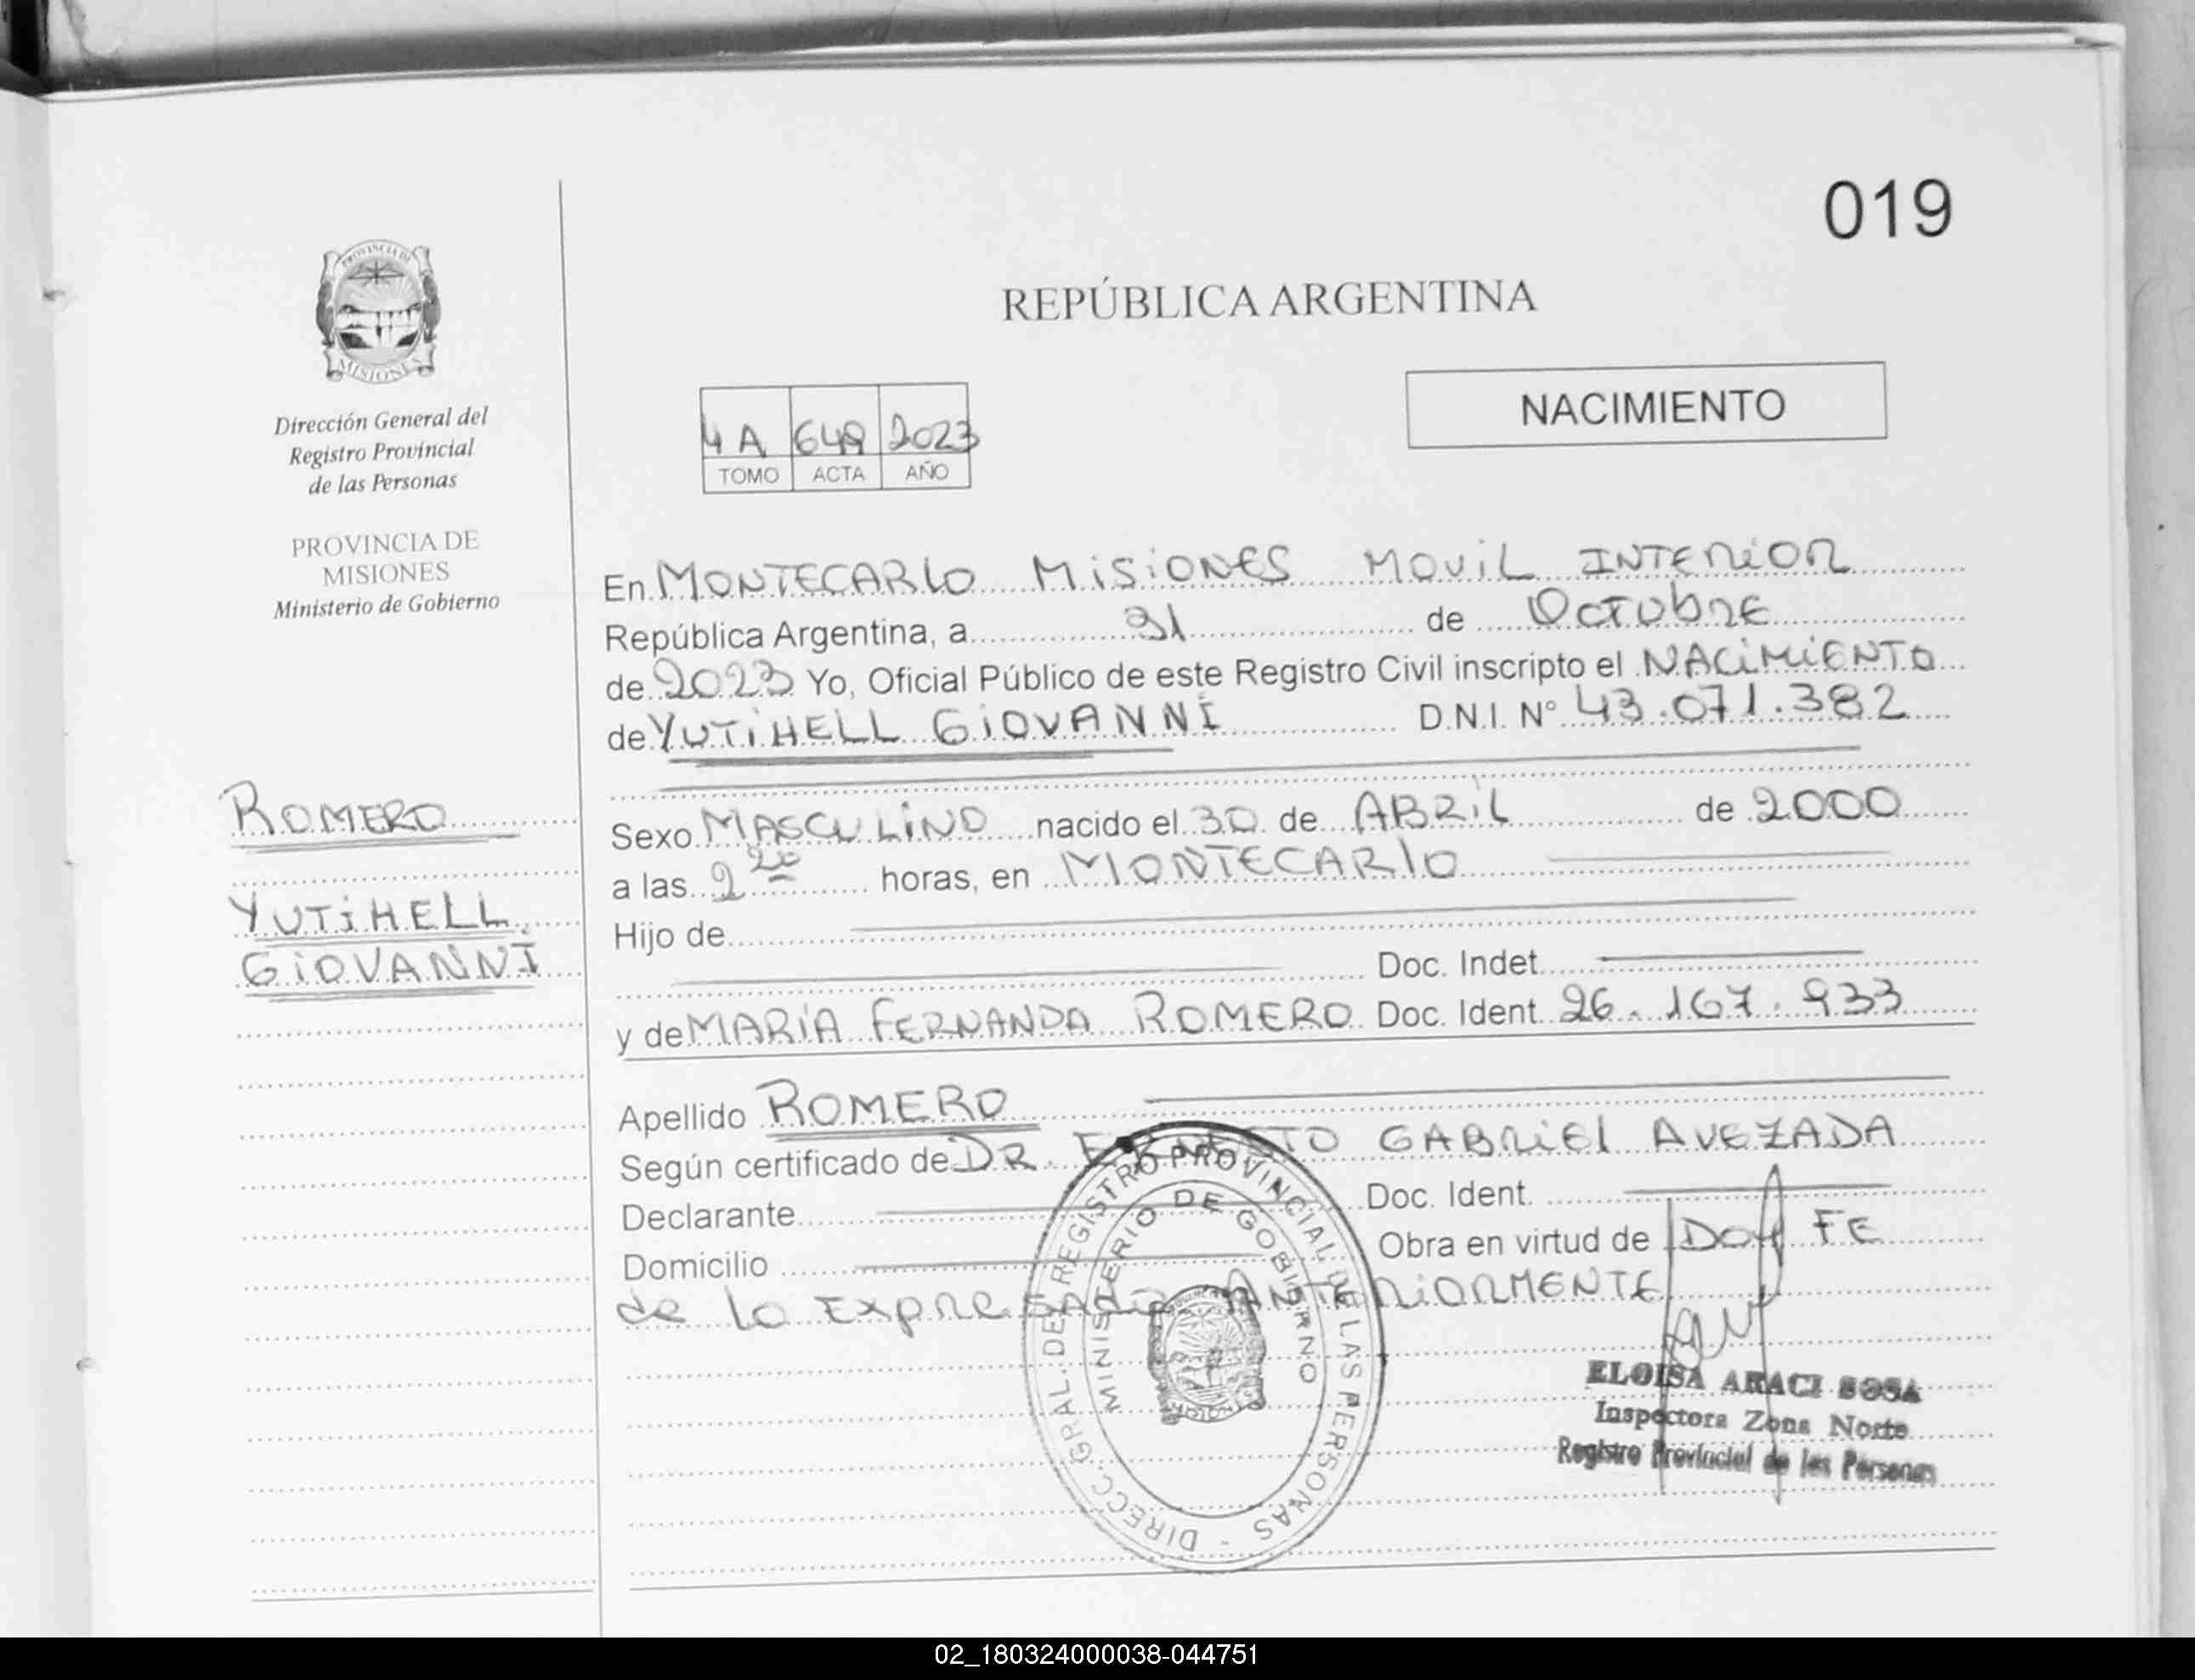 019
PROVINCIA DE
MISIONES
REPÚBLICA ARGENTINA
NACIMIENTO
Dirección General del
Registro Provincial
de las Personas
PROVINCIA DE
MISIONES
Ministerio de Gobierno
4A 649 2023
TOMO ACTA AÑO
En MONTECARLO MISIONES MOVIL INTERIOR
República Argentina, a 31 de OCTUBRE
de 2023 Yo, Oficial Público de este Registro Civil inscripto el NACIMIENTO
de YUTIHELL GIOVANNI D.N.I. N° 43.071.382
ROMERO
YUTIHELL
GIOVANNI
Sexo MASCULINO nacido el 30 de ABRIL de 2000
a las 2 20 horas, en MONTECARLO
Hijo de
Doc. Indet.
y de MARÍA FERNANDA ROMERO Doc. Ident. 26.167.933
Apellido ROMERO
Según certificado de DR. ERNESTO GABRIEL AVEZADA
Declarante Doc. Ident.
Domicilio Obra en virtud de DOY FE
de lo EXPRESADO ANTERIORMENTE
DIRECC. GRAL. DE REGISTRO PROVINCIAL DE LAS PERSONAS -
MINISTERIO DE GOBIERNO
ELOISA ARACI SOSA
Inspectora Zona Norte
Registro Provincial de las Personas
02_180324000038-044751